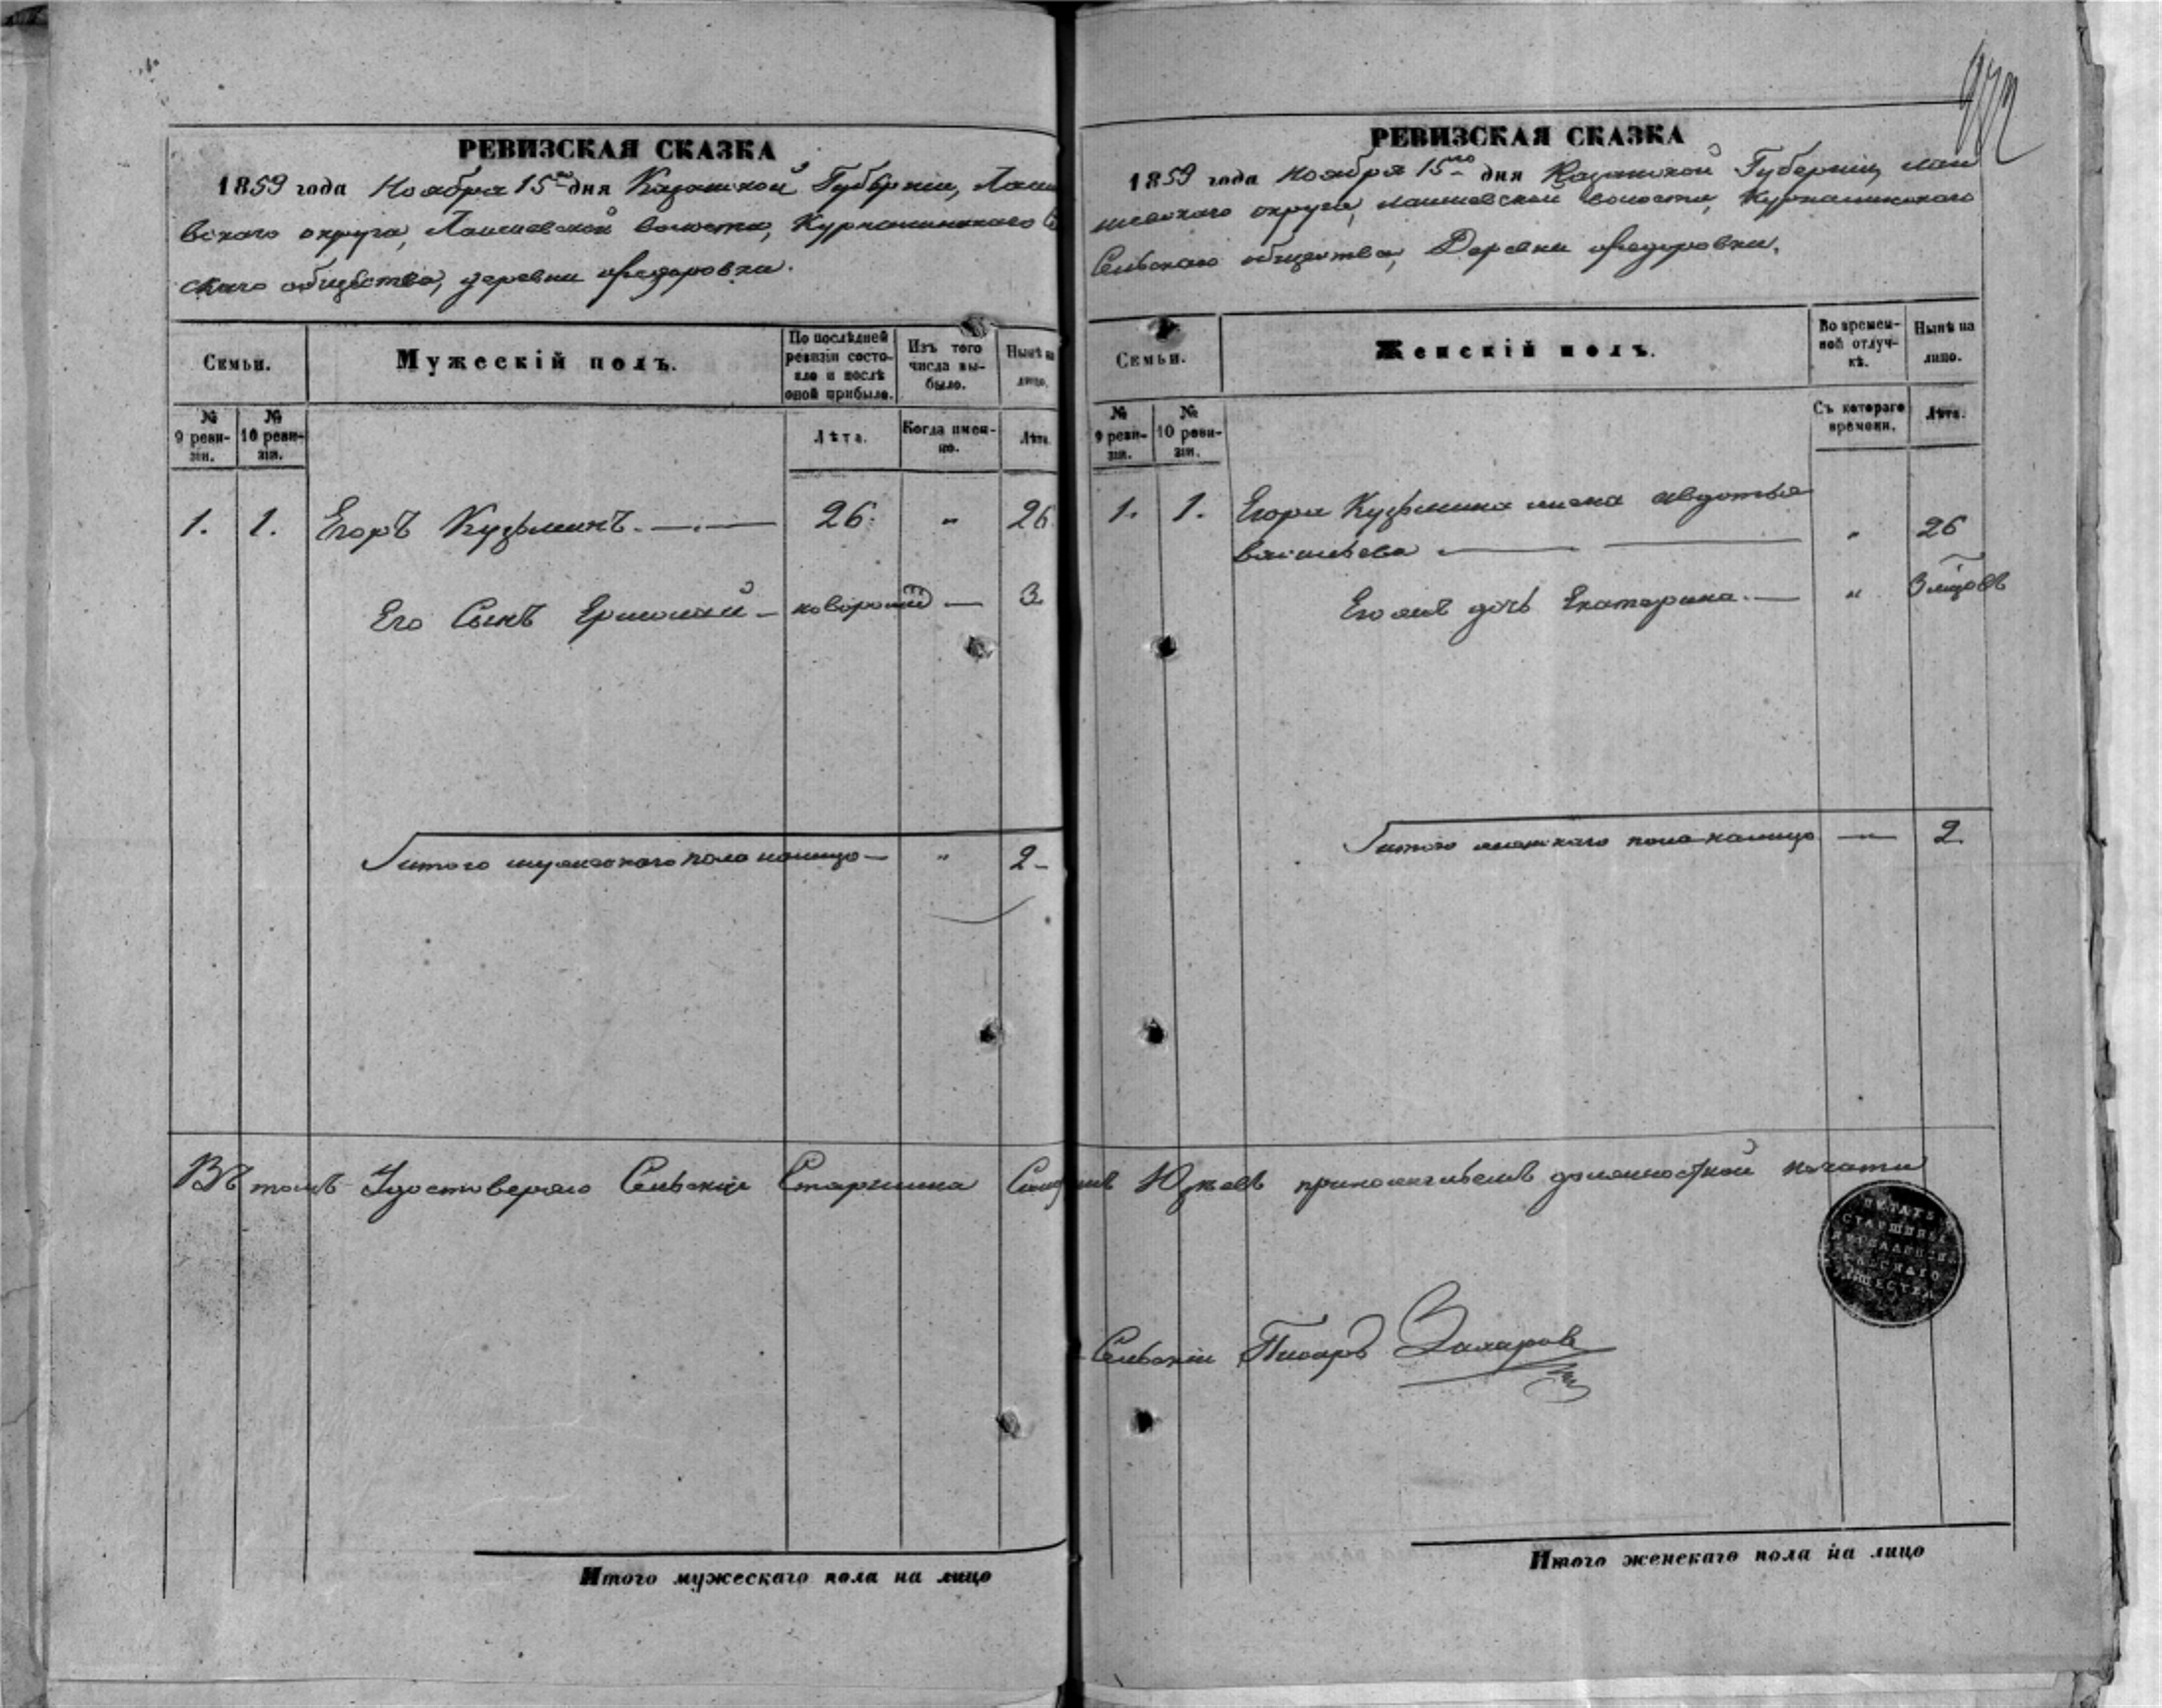 РЕВИЗСКАЯ СКАЗКА
1859 года Ноября 15го дня Казанской Губерніи, Лаише
вскаго округа, Лаишевской волости,
скаго общества, деревни Федоровки.
Семьи.
Мужескій полъ.
По послѣдней ревизіи состояло и послѣ оной прибыло.
Изъ того числа выбыло.
Нынѣ на лицо.
№ 9 ревизіи.
№ 10 ревизіи.
Лѣта.
Когда именно.
Лѣта
1. 1. Егоръ Кузьминъ. 26. „ 26.
Его Сынъ Ермолай — новорожден — 3
Итого мужескаго пола налицо — „ 2 —
Въ томъ Удостоверяю Сельскій Старшина
Итого мужескаго пола на лицо
РЕВИЗСКАЯ СКАЗКА
1859 года Ноября 15го дня Казанской Губерніи, Лаи
шевскаго округа, Лаишевской волости,
Сельскаго общества, Деревни Федоровки.
Семьи.
Женскій полъ.
Во временной отлучкѣ.
Нынѣ на лицо.
№ 9 ревизіи.
№ 10 ревизіи.
Съ котораго времени.
Лѣта.
1. 1. Егора Кузьмина жена Авдотья
Васильева „ 26
Его дочь Екатерина. — „ 3
Итого женскаго пола налицо — 2.
должностной печати
ПЕЧАТЬ
СТАРШИНЫ
Сельскій Писарь Захаровъ
Итого женскаго пола на лицо